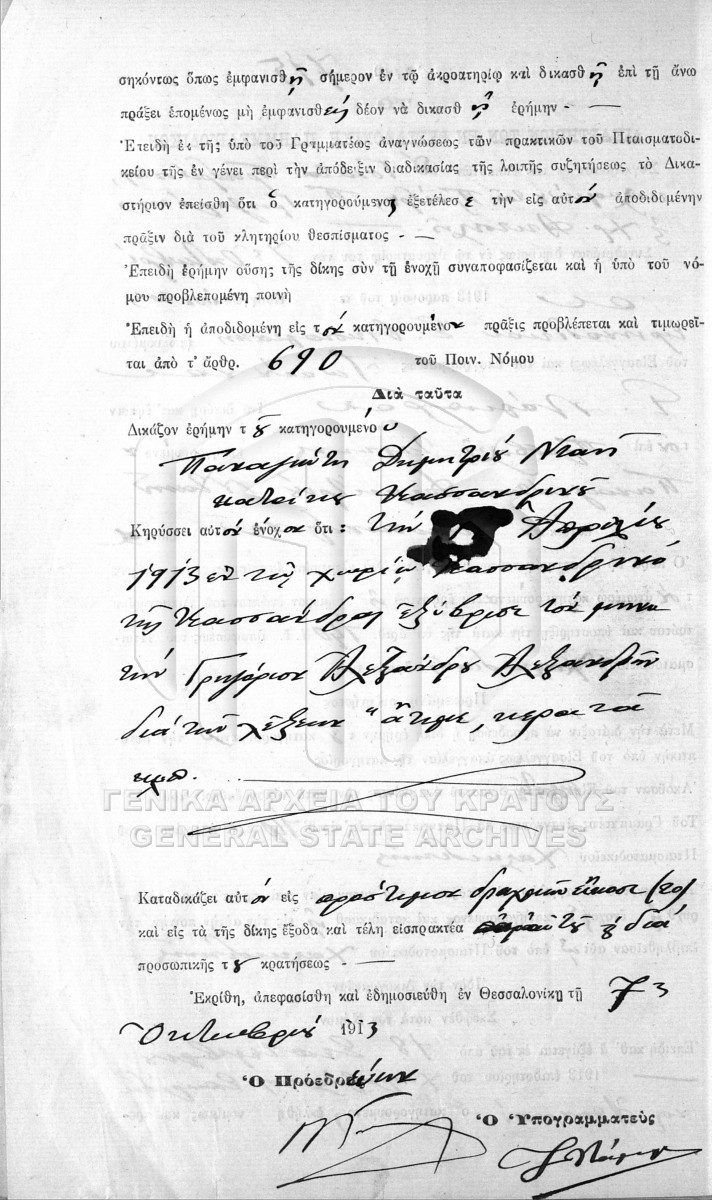 σηκόντως ὅπως ἐμφανισθῇ σήμερον ἐν τῷ ἀκροατηρίῳ καὶ δικασθῇ ἐπὶ τῇ ἄνω
πράξει ἑπομένως μὴ ἐμφανισθεὶς δέον νὰ δικασθῇ ἐρήμην
Ἐπειδὴ ἐκ τῆς ὑπὸ τοῦ Γραμματέως ἀναγνώσεως τῶν πρακτικῶν τοῦ Πταισματοδι-
κείου τῆς ἐν γένει περὶ τὴν ἀπόδειξιν διαδικασίας τῆς λοιπῆς συζητήσεως τὸ Δικα-
στήριον ἐπείσθη ὅτι ὁ κατηγορούμενος ἐξετέλεσε τὴν εἰς αὐτὸν ἀποδιδομένην
πρᾶξιν διὰ τοῦ κλητηρίου θεσπίσματος
Ἐπειδὴ ἐρήμην οὔσης τῆς δίκης σὺν τῇ ἐνοχῇ συναποφασίζεται καὶ ἡ ὑπὸ τοῦ νό-
μου προβλεπομένη ποινὴ
Ἐπειδὴ ἡ ἀποδιδομένη εἰς τὸν κατηγορουμένον πρᾶξις προβλέπεται καὶ τιμωρεῖ-
ται ἀπὸ τ' ἄρθρ. 690 τοῦ Ποιν. Νόμου
Διὰ ταῦτα
Δικάζον ἐρήμην τοῦ κατηγορουμένου
Παναγιώτη Δημητρίου
κατοίκου Κασσανδρινοῦ
Κηρύσσει αὐτὸν ἔνοχον ὅτι: τὴν Ἀπριλίου
1913 ἐν τῷ χωρίῳ Κασσανδρινὸ
τῆς Κασσάνδρας ἐξύβρισε τὸν μηνυ
τὴν Γρηγόριον Ἀλεξάνδρου
διὰ τῶν λέξεων "ἄτιμε, κερατᾶ
κλπ.
ΓΕΝΙΚΑ ΑΡΧΕΙΑ ΤΟΥ ΚΡΑΤΟΥΣ
GENERAL STATE ARCHIVES
Καταδικάζει αὐτὸν εἰς πρόστιμον δραχμῶν εἴκοσι (20)
καὶ εἰς τὰ τῆς δίκης ἔξοδα καὶ τέλη εἰσπρακτέα διὰ
προσωπικῆς τοῦ κρατήσεως
Ἐκρίθη, ἀπεφασίσθη καὶ ἐδημοσιεύθη ἐν Θεσσαλονίκῃ τῇ 7ῃ
Ὀκτωβρίου 1913
Ὁ Προεδρεύων
Ὁ Ὑπογραμματεὺς